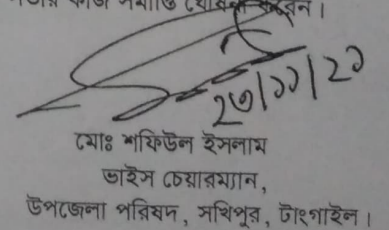 কাজ সমাপ্তি ঘোষনা করেন।
২৩/১১/২১
মোঃ শফিউল ইসলাম
ভাইস চেয়ারম্যান,
উপজেলা পরিষদ, সখিপুর, টাংগাইল।